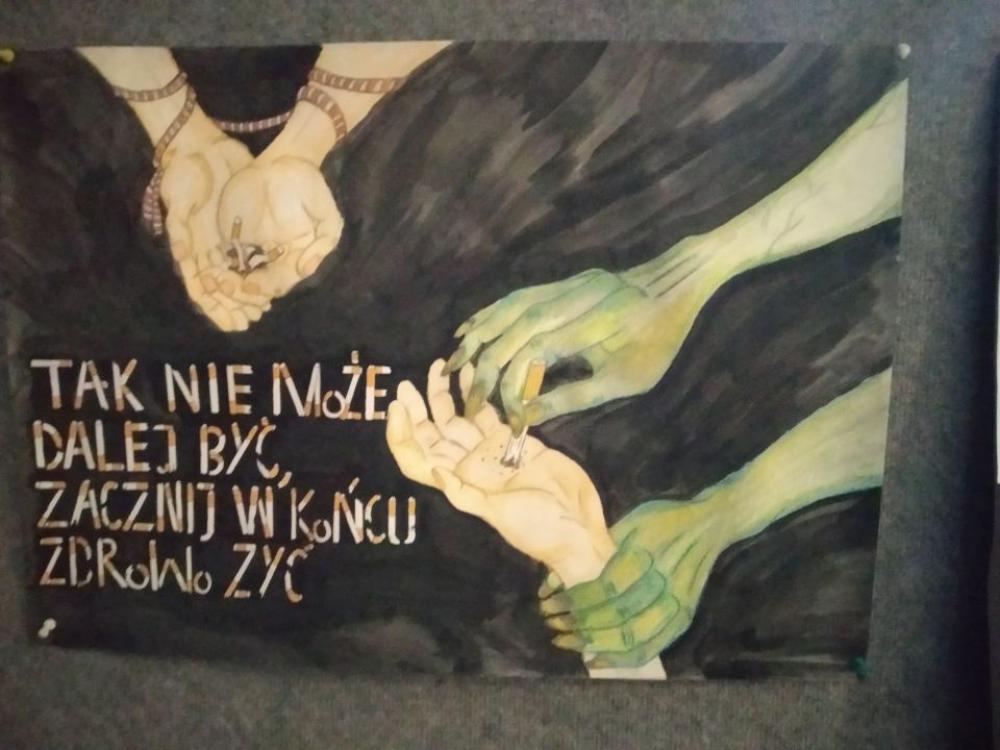 TAK NIE MOŻE
DALEJ BYĆ,
ZACZNIJ W KOŃCU
ZDROWO ŻYĆ